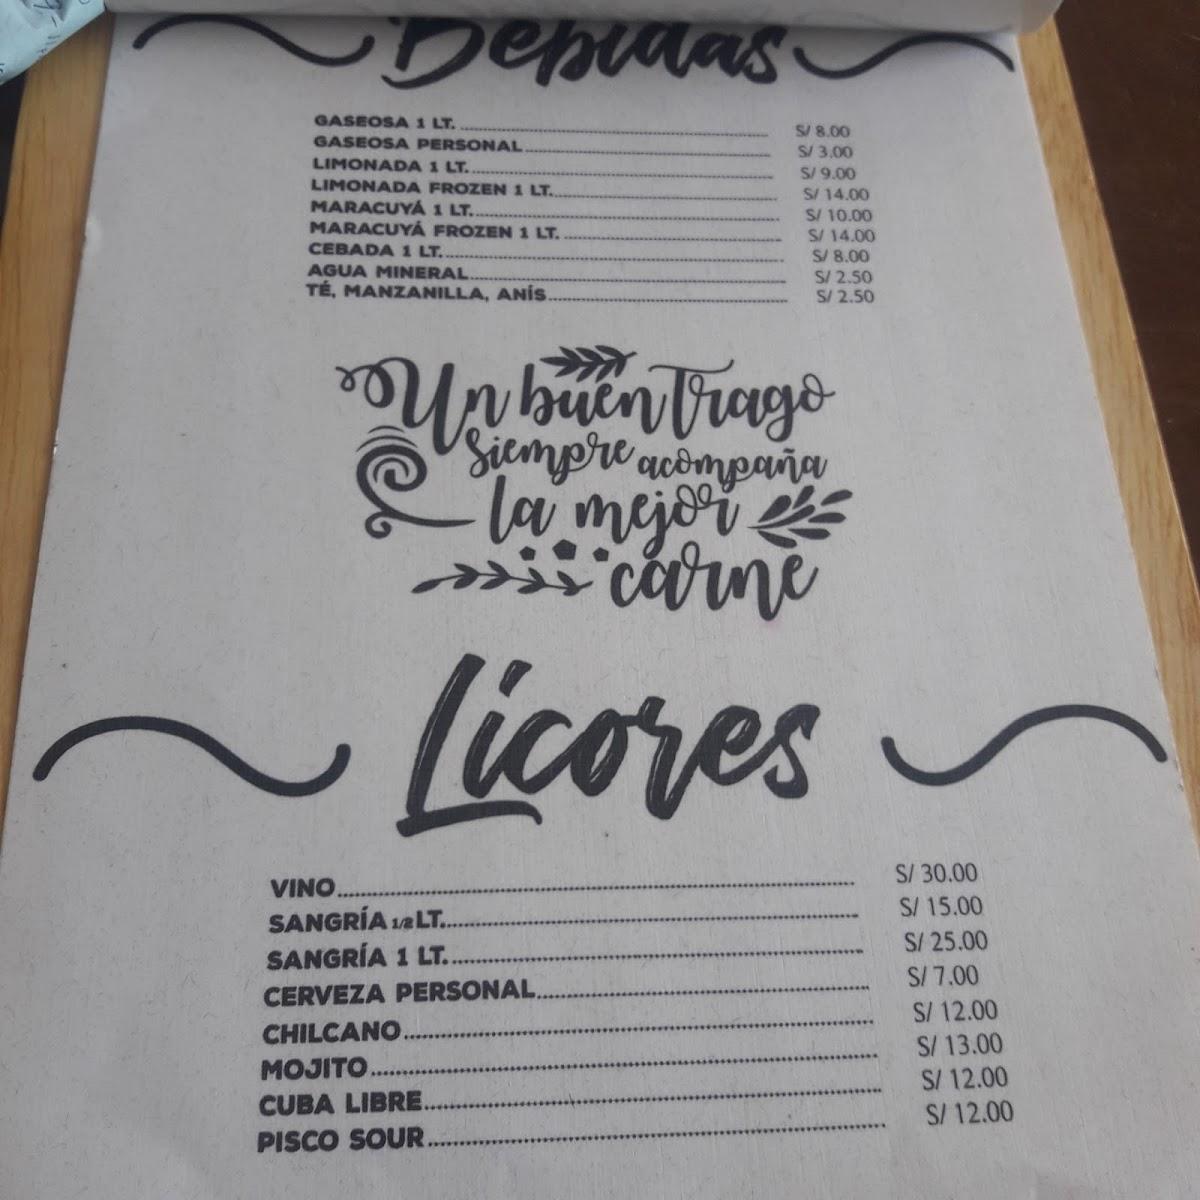 Bebidas
GASEOSA 1 LT. S/ 8.00
GASEOSA PERSONAL S/ 3.00
LIMONADA 1 LT. S/ 9.00
LIMONADA FROZEN 1 LT. S/ 14.00
MARACUYÁ 1 LT. S/ 10.00
MARACUYÁ FROZEN 1 LT. S/ 14.00
CEBADA 1 LT. S/ 8.00
AGUA MINERAL S/ 2.50
TÉ, MANZANILLA, ANÍS S/ 2.50
Un buen Trago
Siempre acompaña
la mejor
carne
Licores
VINO S/ 30.00
SANGRÍA 1/2 LT. S/ 15.00
SANGRÍA 1 LT. S/ 25.00
CERVEZA PERSONAL S/ 7.00
CHILCANO S/ 12.00
MOJITO S/ 13.00
CUBA LIBRE S/ 12.00
PISCO SOUR S/ 12.00